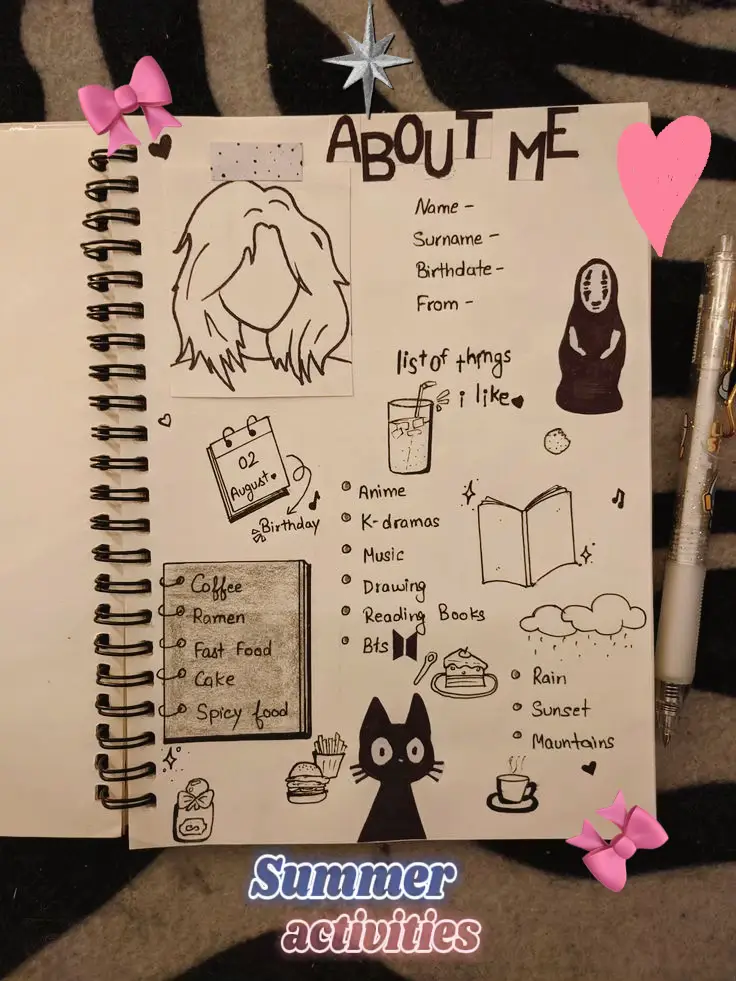 ABOUT ME
Name -
Surname -
Birthdate -
From -
list of things
i like
02
August
Birthday
Anime
K-dramas
Music
Drawing
Reading Books
Bts
Coffee
Ramen
Fast Food
Cake
Spicy food
Rain
Sunset
Mauntains
Summer
activities